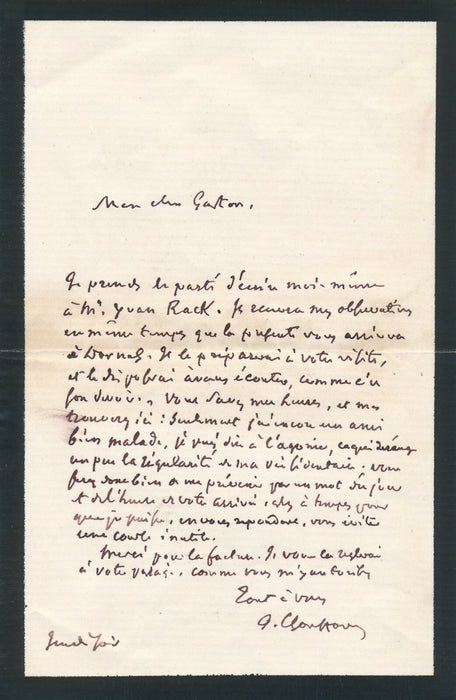 Mon cher Gaston,
Je prends le parti d'écrire moi-même
à Mr. Yvan Rack. Il recevra mes observations
en même temps que la présente vous arrivera
à Dornach. Je le préparerai à votre visite,
et le disposerai à vous écouter, comme c'est
son devoir. Vous savez mes heures, et me
trouverez ici : seulement j'ai encore un ami
bien malade, je puis dire à l'agonie, ce qui dérange
un peu la régularité de ma vie sédentaire. Vous
ferez donc bien de me prévenir par un mot du jour
et de l'heure de votre arrivée, assez à temps pour
que je puisse, en vous répondant, vous éviter
une course inutile.
Merci pour la facture. Je vous la réglerai
à votre passage, comme vous m'y autorisez
Tout à vous
Jeudi soir